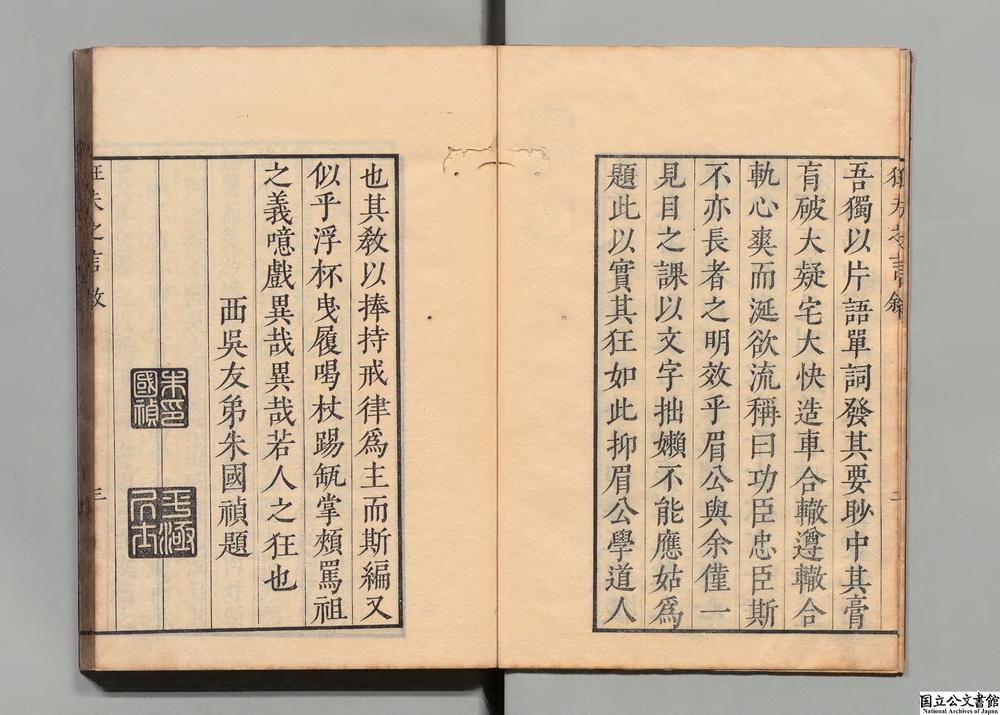 吾獨以片語單詞發其要眇中其膏
肓破大疑宅大快造車合轍遵轍合
軌心爽而涎欲流稱曰功臣忠臣斯
不亦長者之明效乎眉公與余僅一
見目之課以文字拙嬾不能應姑爲
題此以實其狂如此抑眉公學道人
也其敎以捧持戒律爲主而斯編又
似乎浮杯曳履喝杖踢瓿掌頰罵祖
之義噫戲異哉異哉若人之狂也
西吳友弟朱國禎題
朱印
國禎
狂夫之言敘
三
国立公文書館
National Archives of Japan